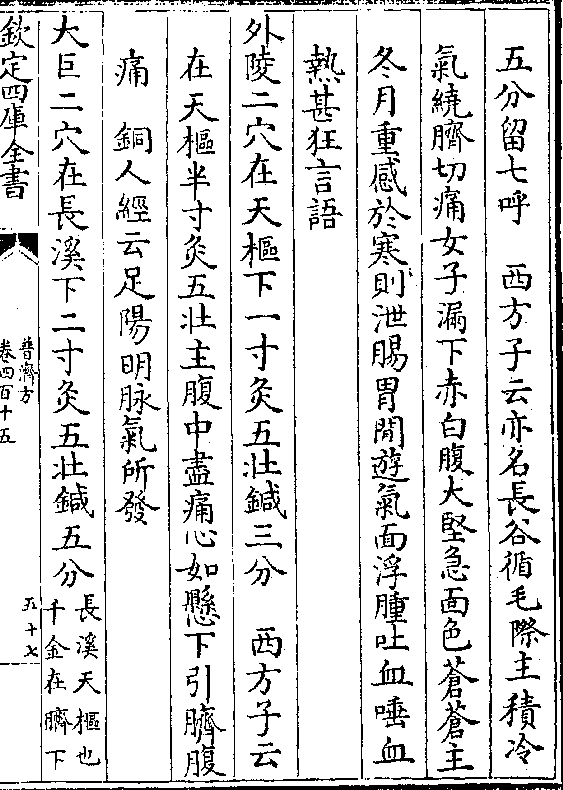 五分留七呼　西方子云亦名長谷循毛際主積冷
氣繞臍切痛女子漏下赤白腹大堅急面色蒼蒼主
冬月重感於寒則泄賜胃閒遊氣面浮腫吐血唾血
熱甚狂言語
外陵二穴在天樞下一寸灸五壯鍼三分　西方子云
在天樞半寸灸五壯主腹中盡痛心如懸下引臍腹
痛　銅人經云足陽明脉氣所發
大巨二穴在長溪下二寸灸五壯鍼五分
長溪天樞也
千金在臍下
欽定四庫全書
普濟方
卷四百十五
五十七